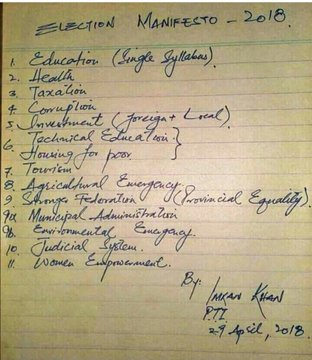 ELECTION MANIFESTO - 2018.
1. Education (Single Syllabus).
2. Health
3. Taxation
4. Corruption
5. Investment (Foreign + Local).
6. Technical Education. }
Housing for poor }
7. Tourism
8. Agricultural Emergency.
9. Stronger Federation (Provincial Equality).
9a Municipal Administration
9b. Environmental Emergency.
10. Judicial System.
11. Women Empowerment.
By:
IMRAN KHAN
PTI
29 April, 2018.